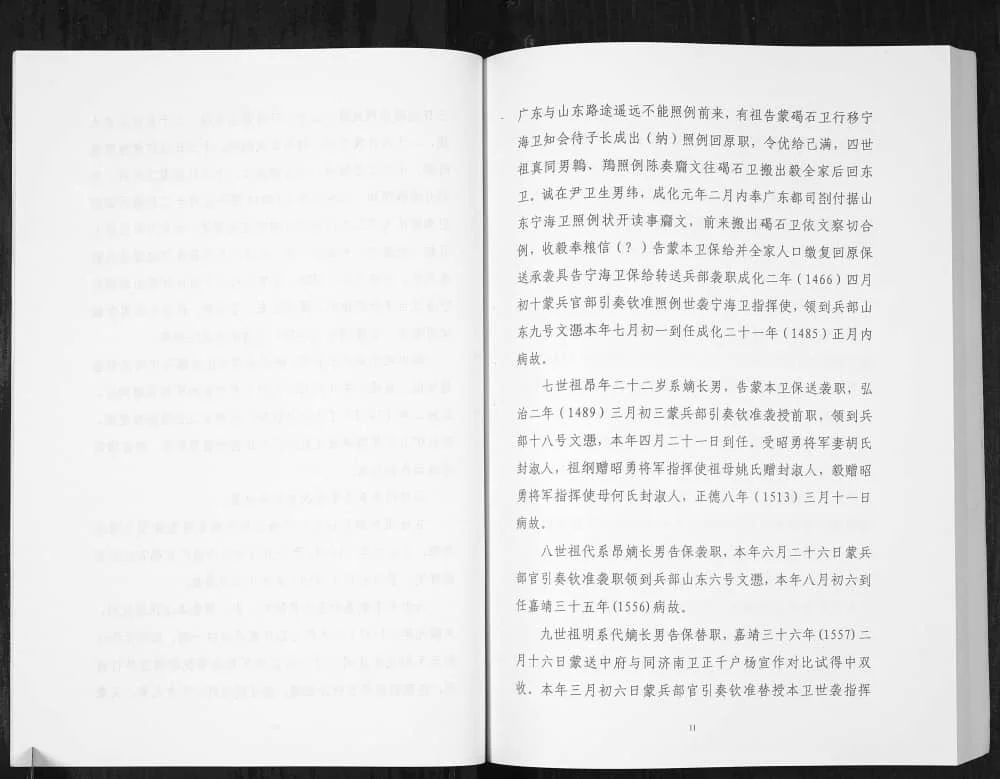 广东与山东路途遥远不能照例前来，有祖告蒙碣石卫行移宁
海卫知会待子长成出（纳）照例回原职，令优给已满，四世
祖真同男鶤、鶪照例陈奏齎文往碣石卫搬出毅全家后回东
卫。诚在尹卫生男纬，成化元年二月内奉广东都司劄付据山
东宁海卫照例状开读事齎文，前来搬出碣石卫依文察切合
例，收毅奉粮信（？）告蒙本卫保给并全家人口缴复回原保
送承袭具告宁海卫保给转送兵部袭职成化二年（1466）四月
初十蒙兵官部引奏钦准照例世袭宁海卫指挥使，领到兵部山
东九号文凴本年七月初一到任成化二十一年（1485）正月内
病故。
七世祖昂年二十二岁系嫡长男，告蒙本卫保送袭职，弘
治二年（1489）三月初三蒙兵部引奏钦准袭授前职，领到兵
部十八号文凴，本年四月二十一日到任。受昭勇将军妻胡氏
封淑人，祖纲赠昭勇将军指挥使祖母姚氏赠封淑人，毅赠昭
勇将军指挥使母何氏封淑人，正德八年（1513）三月十一日
病故。
八世祖代系昂嫡长男告保袭职，本年六月二十六日蒙兵
部官引奏钦准袭职领到兵部山东六号文凴，本年八月初六到
任嘉靖三十五年(1556)病故。
九世祖明系代嫡长男告保替职，嘉靖三十六年(1557)二
月十六日蒙送中府与同济南卫正千户杨宣作对比试得中双
收。本年三月初六日蒙兵部官引奏钦准替授本卫世袭指挥
11